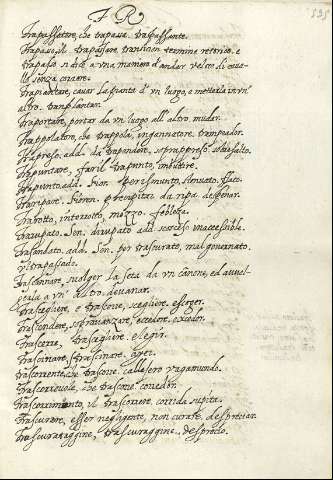 TR
Trapassatore, che trapassa. traspassante.
Trapasso, il trapassare, transicion termine retorico. e
trapasso si dice a una maniera d'andar veloce di caua-
llo senza correre.
Trapiantare, cauar la pianta d'un luogo, e metterla in un'
altro. transplantar.
Traportare, portar da un luogo all' altro. mudar.
Trappolatore, che trappola, ingannatore. trampeador.
Trapreso, add. da trapendere, soprappreso.
Trapuntare, far il trapunto, imbottire.
Trapunto, add. Fior.
Traripare. Fioren. precipitar da ripa. despenar.
Trarotto, interrotto, mozzo.
Trarupato. Sen. dirupato add. scosceso inaccessibile.
Trasandato. add. Sen. per trascurato, mal gouernato,
e trapassado.
Trascannare, suolger la seta da un canone, ed auuol-
gerla a un' altro. deuanar.
Trascegliere, e trascerre, scegliere. escoger.
Trascendere, soprauanzare, eccedere. exceder.
Trascerre, trascegliere. elegir.
Trascinare, strascinare.
Trascorrente, che trascorre. callejero vagamundo.
Trascorreuole, che trascorre. corredor.
Trascorrimento, il trascorrere. corrida supita.
Trascurare, esser negligente, non curare. despreciar.
Trascurataggine, trascuraggine. desprecio.